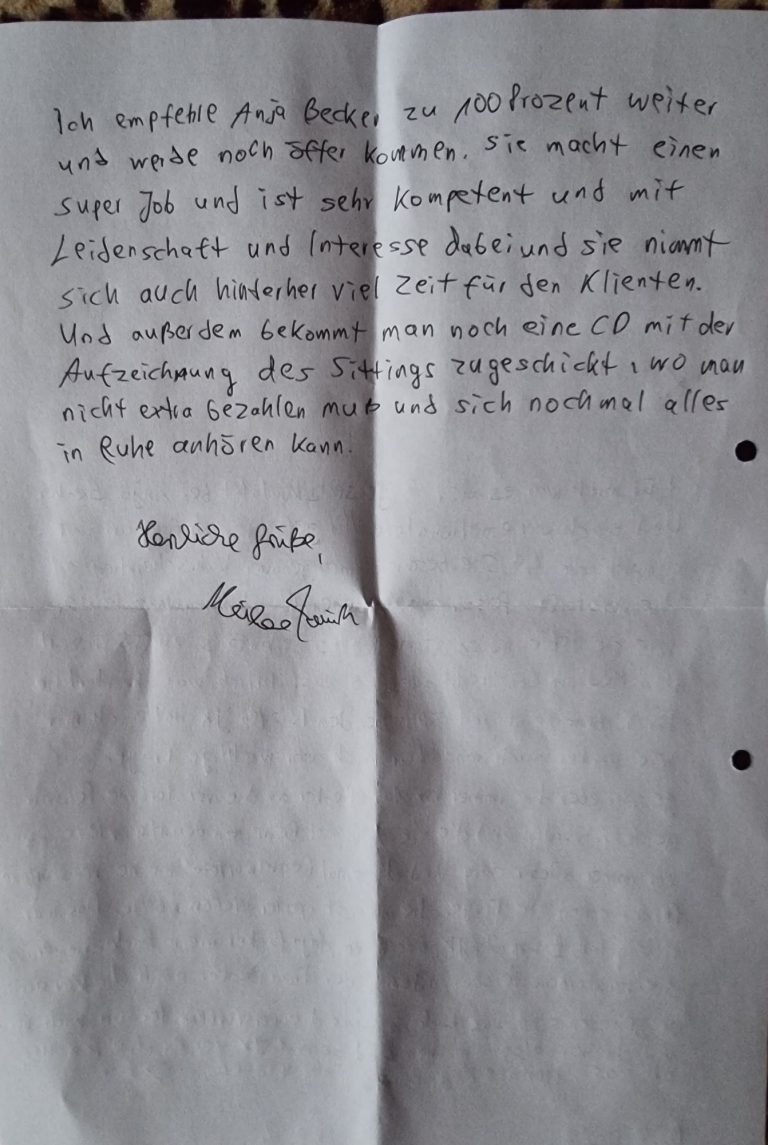 Ich empfehle Anja Becker zu 100 Prozent weiter
und werde noch öfter kommen. Sie macht einen
super Job und ist sehr kompetent und mit
Leidenschaft und Interesse dabei und sie nimmt
sich auch hinterher viel Zeit für den Klienten.
Und außerdem bekommt man noch eine CD mit der
Aufzeichnung des Sittings zugeschickt, wo man
nicht extra bezahlen muß und sich nochmal alles
in Ruhe anhören kann.
Herzliche Grüße,